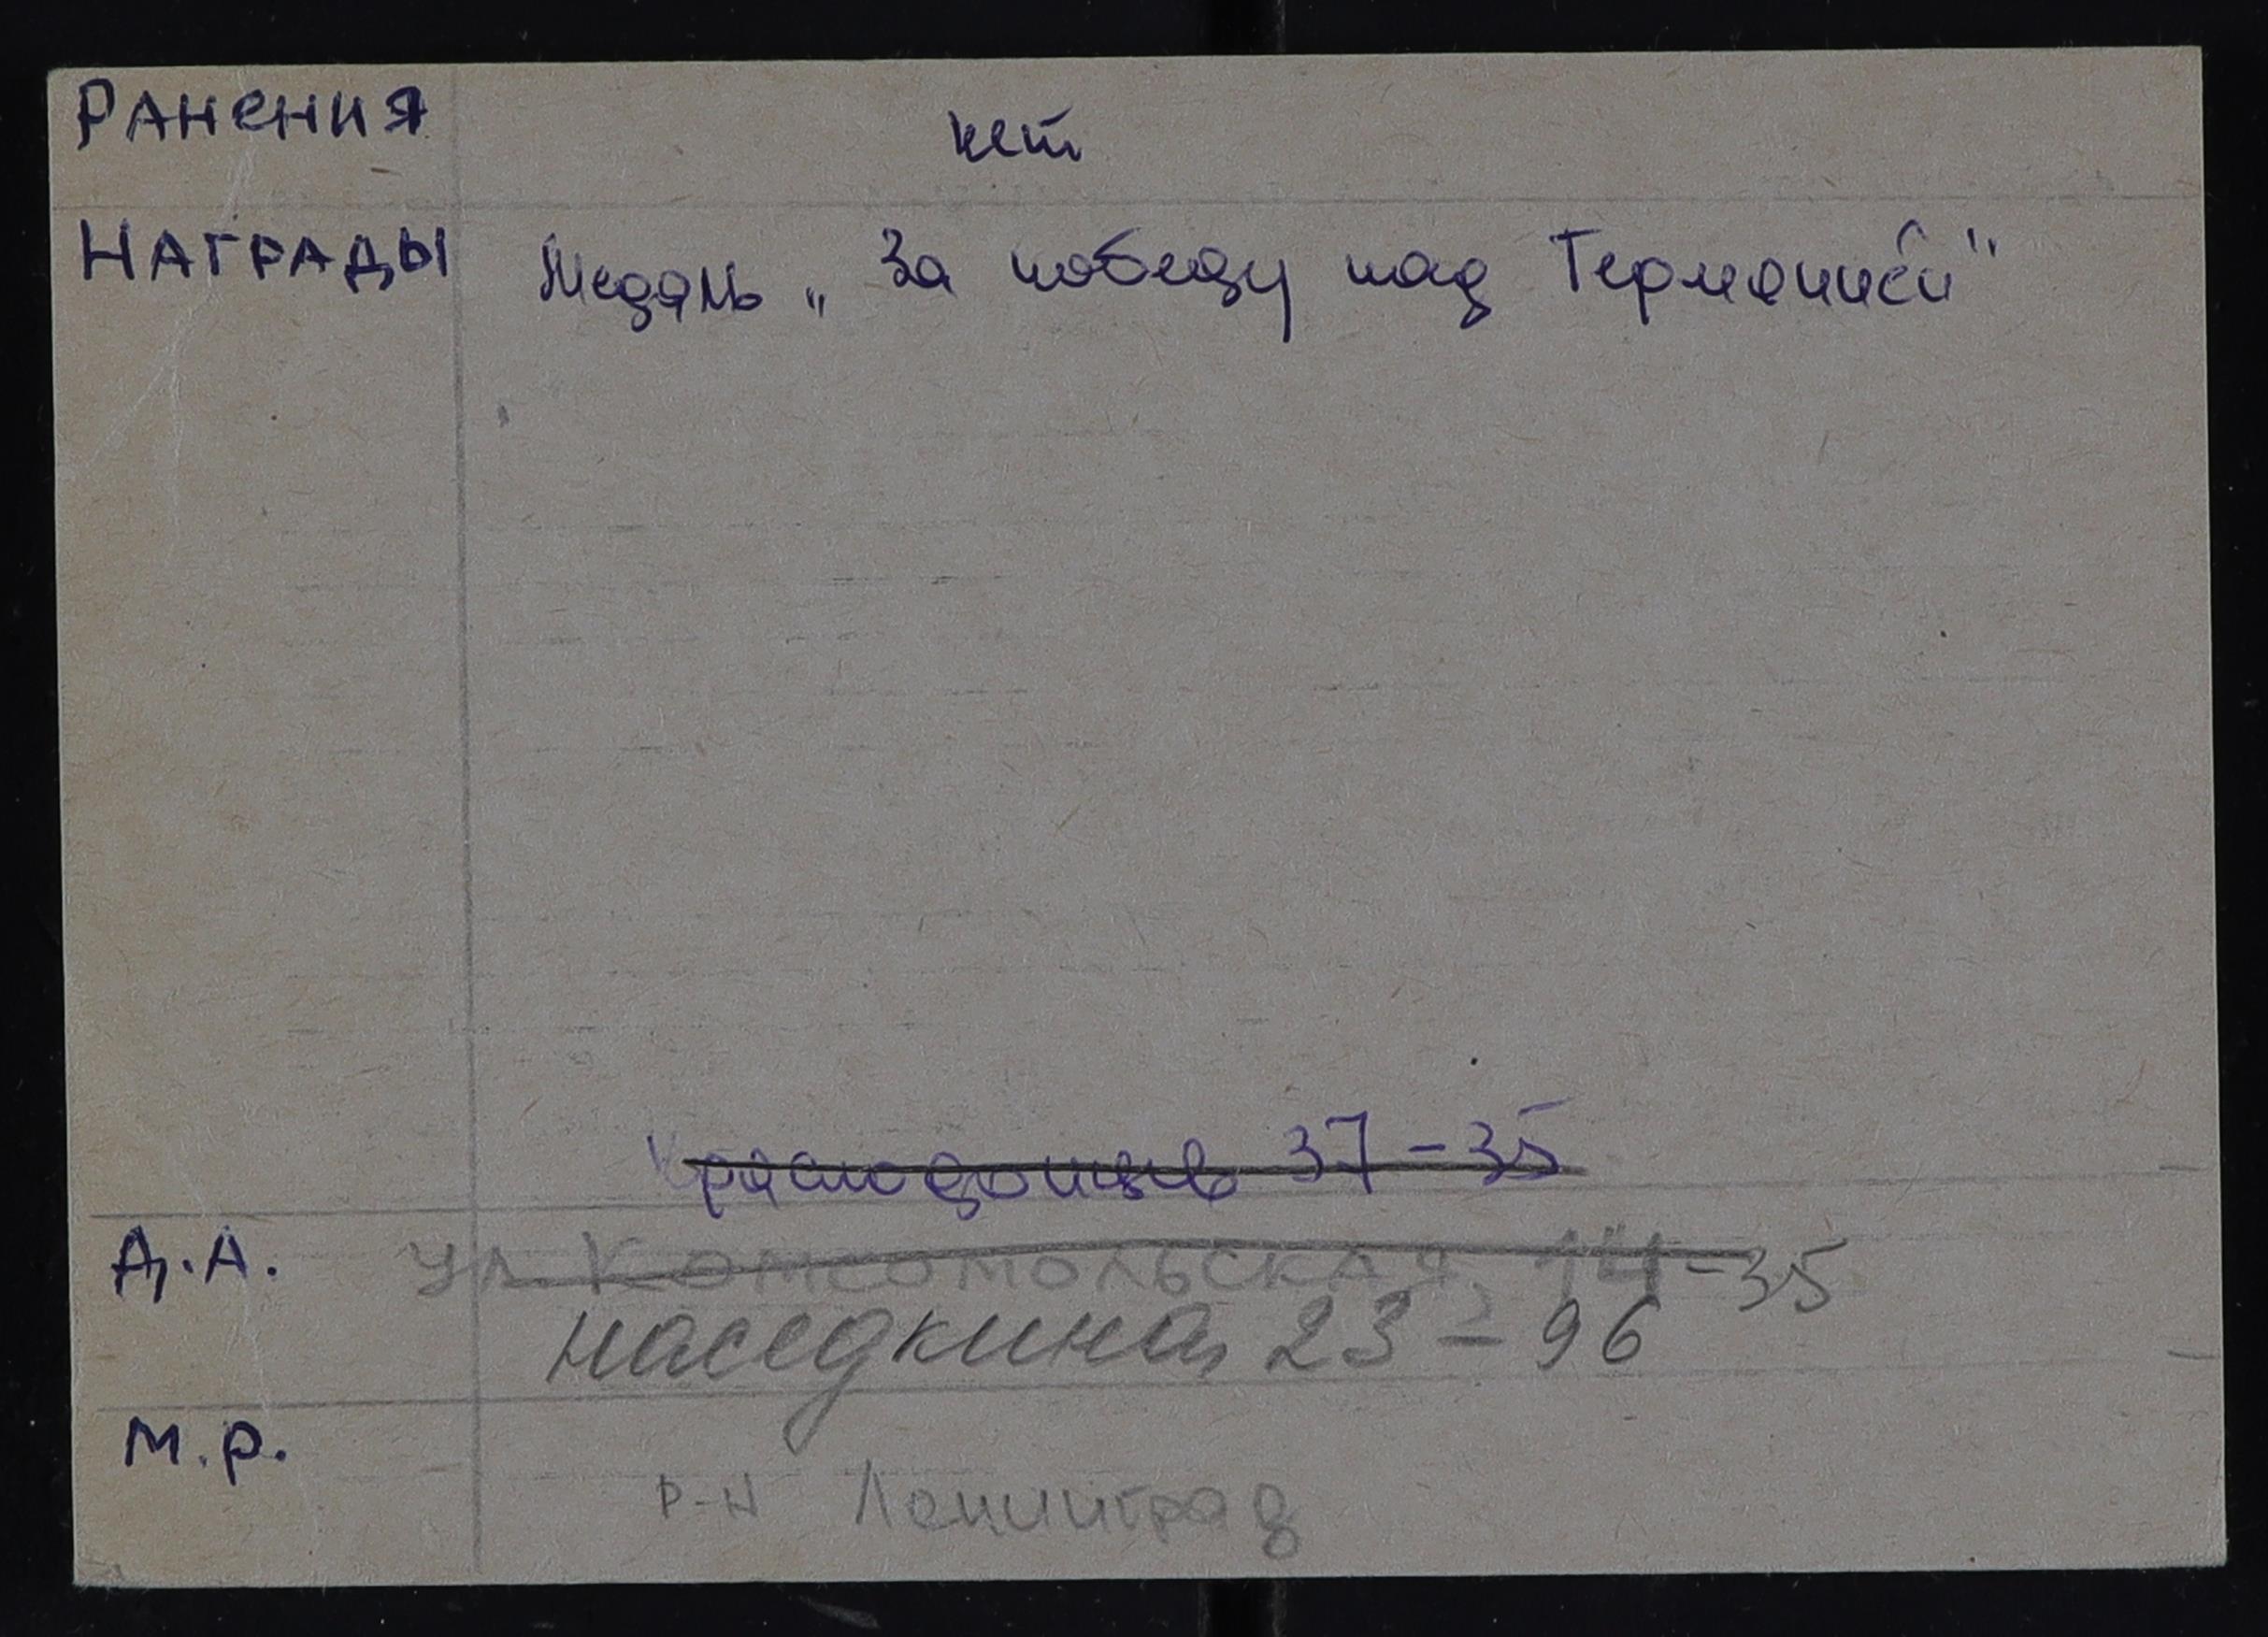 РАНЕНИЯ нет
НАГРАДЫ Медаль „За победу над Германией"
Краснодонцев 37-35
Д.А. ул. КОМСОМОЛЬСКАЯ, 14-35
Наседкина, 23-96
М.Р.
Р-Н Ленинград